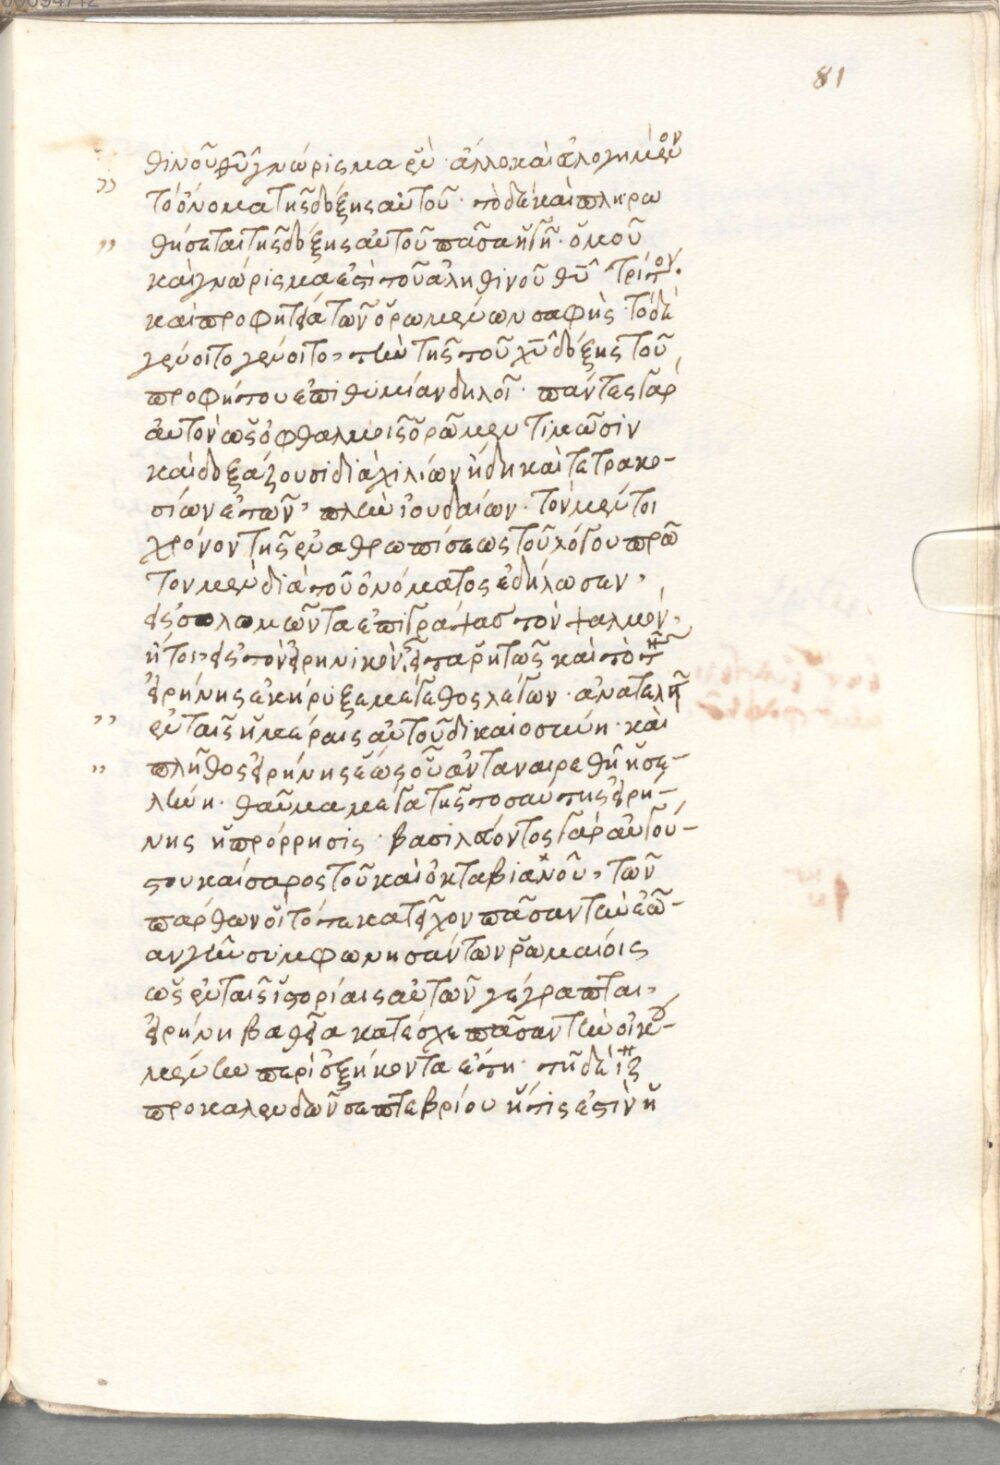 81
θινοῦ θῦ γνώρισμα ἓν· ἀλλὰ καὶ εὐλογημένον
τὸ ὄνομα τῆς δόξης αὐτοῦ· τὸ δὲ καὶ πληρω
θήσεται τῆς δόξης αὐτοῦ πᾶσα ἡ γῆ· ὁμοῦ
καὶ γνώρισμα ἐστὶ τοῦ ἀληθινοῦ θῦ τρίτον·
καὶ προφητεία τῶν ὁρωμένων σαφής· τὸ δὲ
γένοιτο γένοιτο, τὴν τῆς τοῦ χῦ δόξης τοῦ
προφήτου ἐπιθυμίαν δηλοῖ· πάντες γὰρ
αὐτὸν ὡς ὀφθαλμοῖς ὁρῶμεν τιμῶσιν
καὶ δοξάζουσι διὰ χιλίων ἤδη καὶ τετρακο-
σίων ἐτῶν, πλὴν ἰουδαίων· τὸν μέντοι
χρόνον τῆς ἐνανθρωπίσεως τοῦ λόγου πρῶ
τον μὲν διὰ τοῦ ὀνόματος ἐδήλωσαν,
εἰς σολομῶντα ἐπιγράψας τὸν ψαλμόν,
ἤτοι, εἰς τὸν εἰρηνικόν· ἔπειτα ῥητῶς καὶ τὸ τῆς
εἰρήνης ἐκήρυξε μέγεθος λέγων· ἀνατελεῖ
ἐν ταῖς ἡμέραις αὐτοῦ δικαιοσύνη· καὶ
πλῆθος εἰρήνης ἕως οὗ ἀνταναιρεθῇ ἡ σε-
λήνη· θαῦμα μέγα τῆς τοσαύτης εἰρή-
νης ἡ πρόρρησις· βασιλεύοντος γὰρ αὐγού-
στου καίσαρος τοῦ καὶ ὀκταβιανοῦ, τῶν
πάρθων οἳ τότε κατεῖχον πᾶσαν τὴν ἑῴ-
αν γῆν συμφωνησάντων ῥωμαίοις
ὡς ἐν ταῖς ἱστορίαις αὐτῶν γέγραπται,
εἰρήνη βαθεῖα κατέσχε πᾶσαν τὴν οἰκου-
μένην περὶ ἑξήκοντα ἔτη· τῇ δὲ ιζ
προκαλενδῶν σεπτεβρίου ἥτις ἐστὶν ἡ